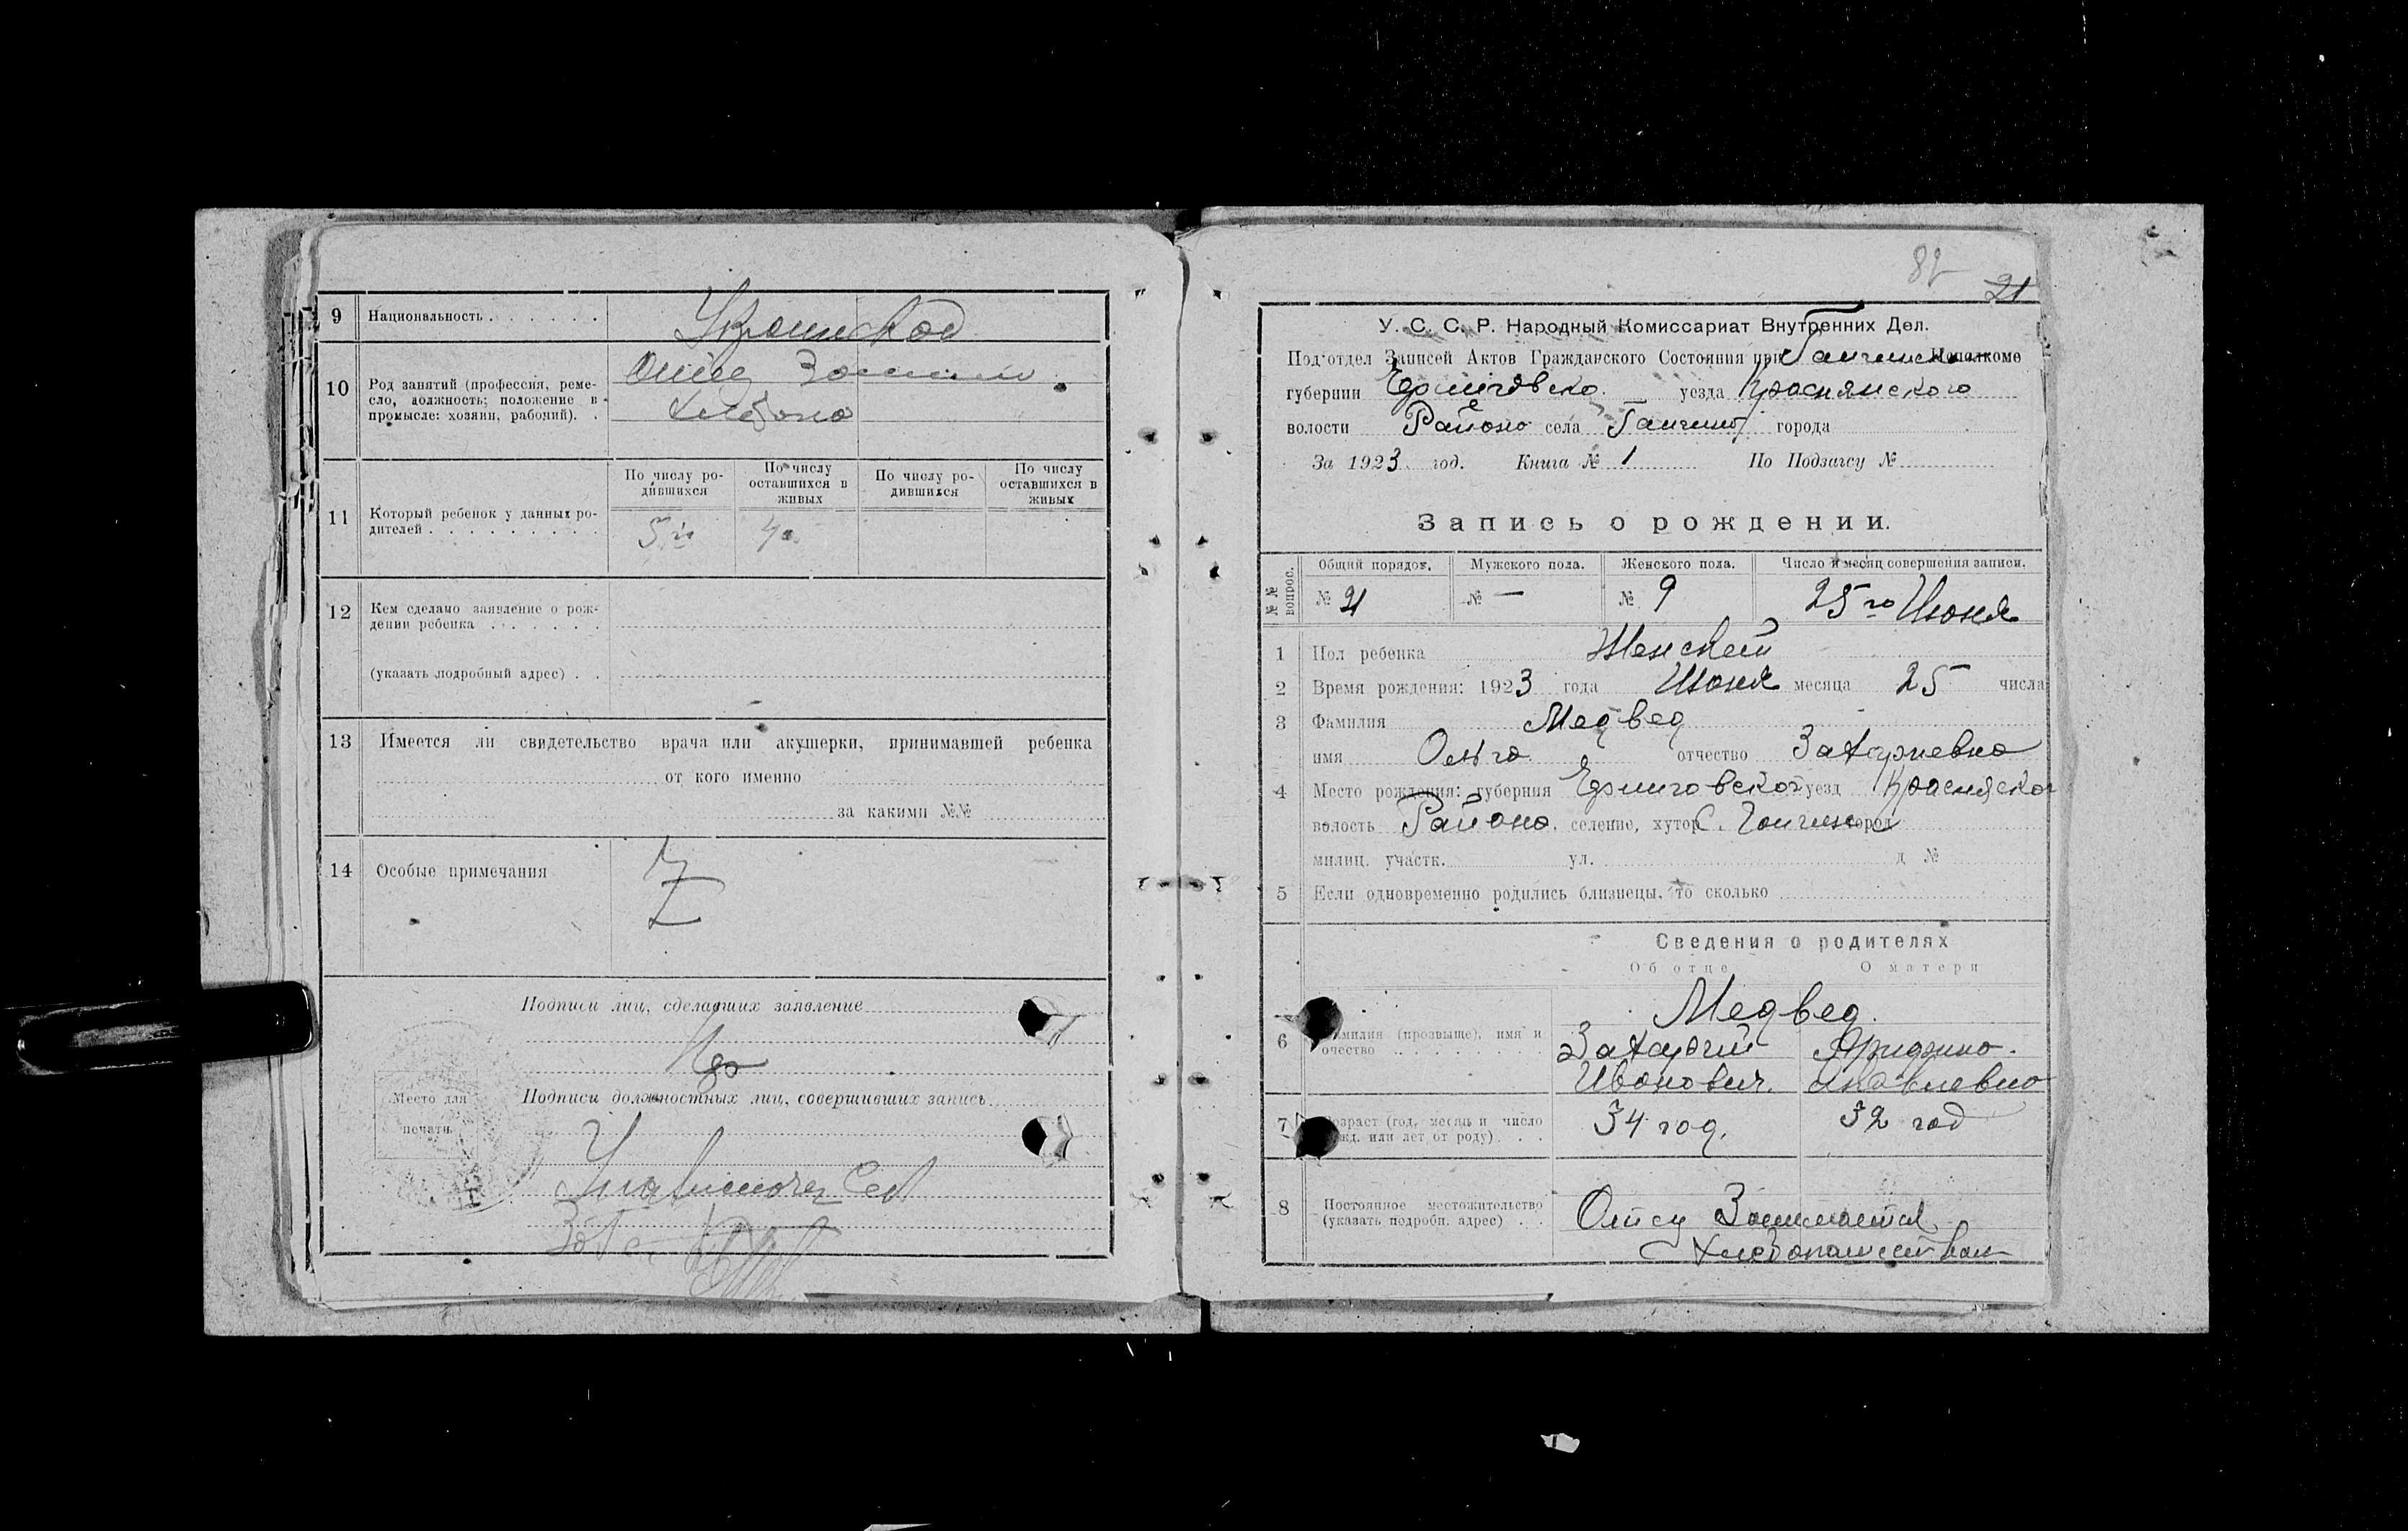 9 Национальность . . . . . .
Украинской
10 Род занятий (профессия, реме-
сло, должность; положение в
промысле: хозяин, рабочий). .
Отец
11 Который ребенок у данных ро-
дителей . . . . . . . . .
По числу ро-
дившихся
По числу
оставшихся в
живых
По числу ро-
дившихся
По числу
оставшихся в
живых
5й 4
12 Кем сделано заявление о рож-
дении ребенка . . . . . .
(указать подробный адрес) . .
13 Имеется ли свидетельство врача или акушерки, принимавшей ребенка
от кого именно
за какими №№
14 Особые примечания
Z
Подписи лиц, сделавших заявление
Место для
печати.
Подписи должностных лиц, совершивших запись
82 21
У. С. С. Р. Народный Комиссариат Внутренних Дел.
Под'отдел Записей Актов Гражданского Состояния при Исполкоме
губернии уезда Краснянского
волости Района села города
За 1923 год. Книга № 1 По Подзагсу №
Запись о рождении.
№№ вопрос.
Общий порядок. Мужского пола. Женского пола. Число и месяц совершения записи.
№ 21 № — № 9 25го Июня
1 Пол ребенка Женский
2 Время рождения: 1923 года Июня месяца 25 числа
3 Фамилия Медвед
имя Ольга отчество Захариевна
4 Место рождения: губерния уезд
волость Района селение, хутор С. город
милиц. участк. ул. д №
5 Если одновременно родились близнецы, то сколько
Сведения о родителях
Об отце О матери
Медвед.
6 Фамилия (прозвыще), имя и
очество . . . . . . . . .
Захарий
Иванович.
7 Возраст (год, месяц и число
рожд. или лет от роду) . . .
34 год. 32 год
8 Постоянное местожительство
(указать подробн. адрес) . .
Отец Занимается
Хлебопашеством